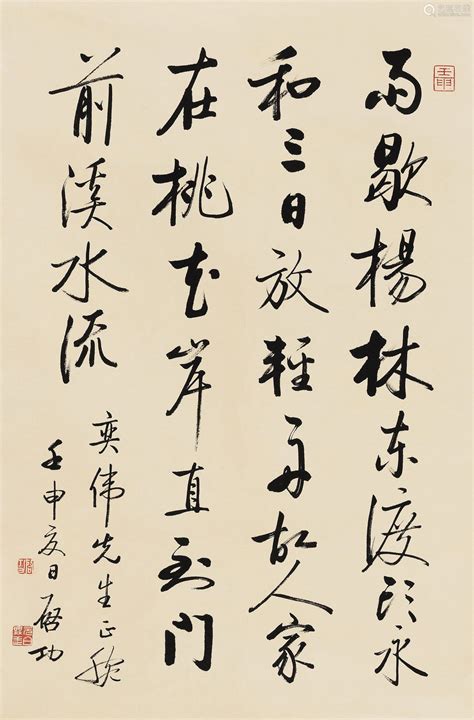 雨歇楊林东渡头永
和三日放輕舟故人家
在桃花岸直到门
前溪水流
奕伟先生正腕
壬申夏日启功